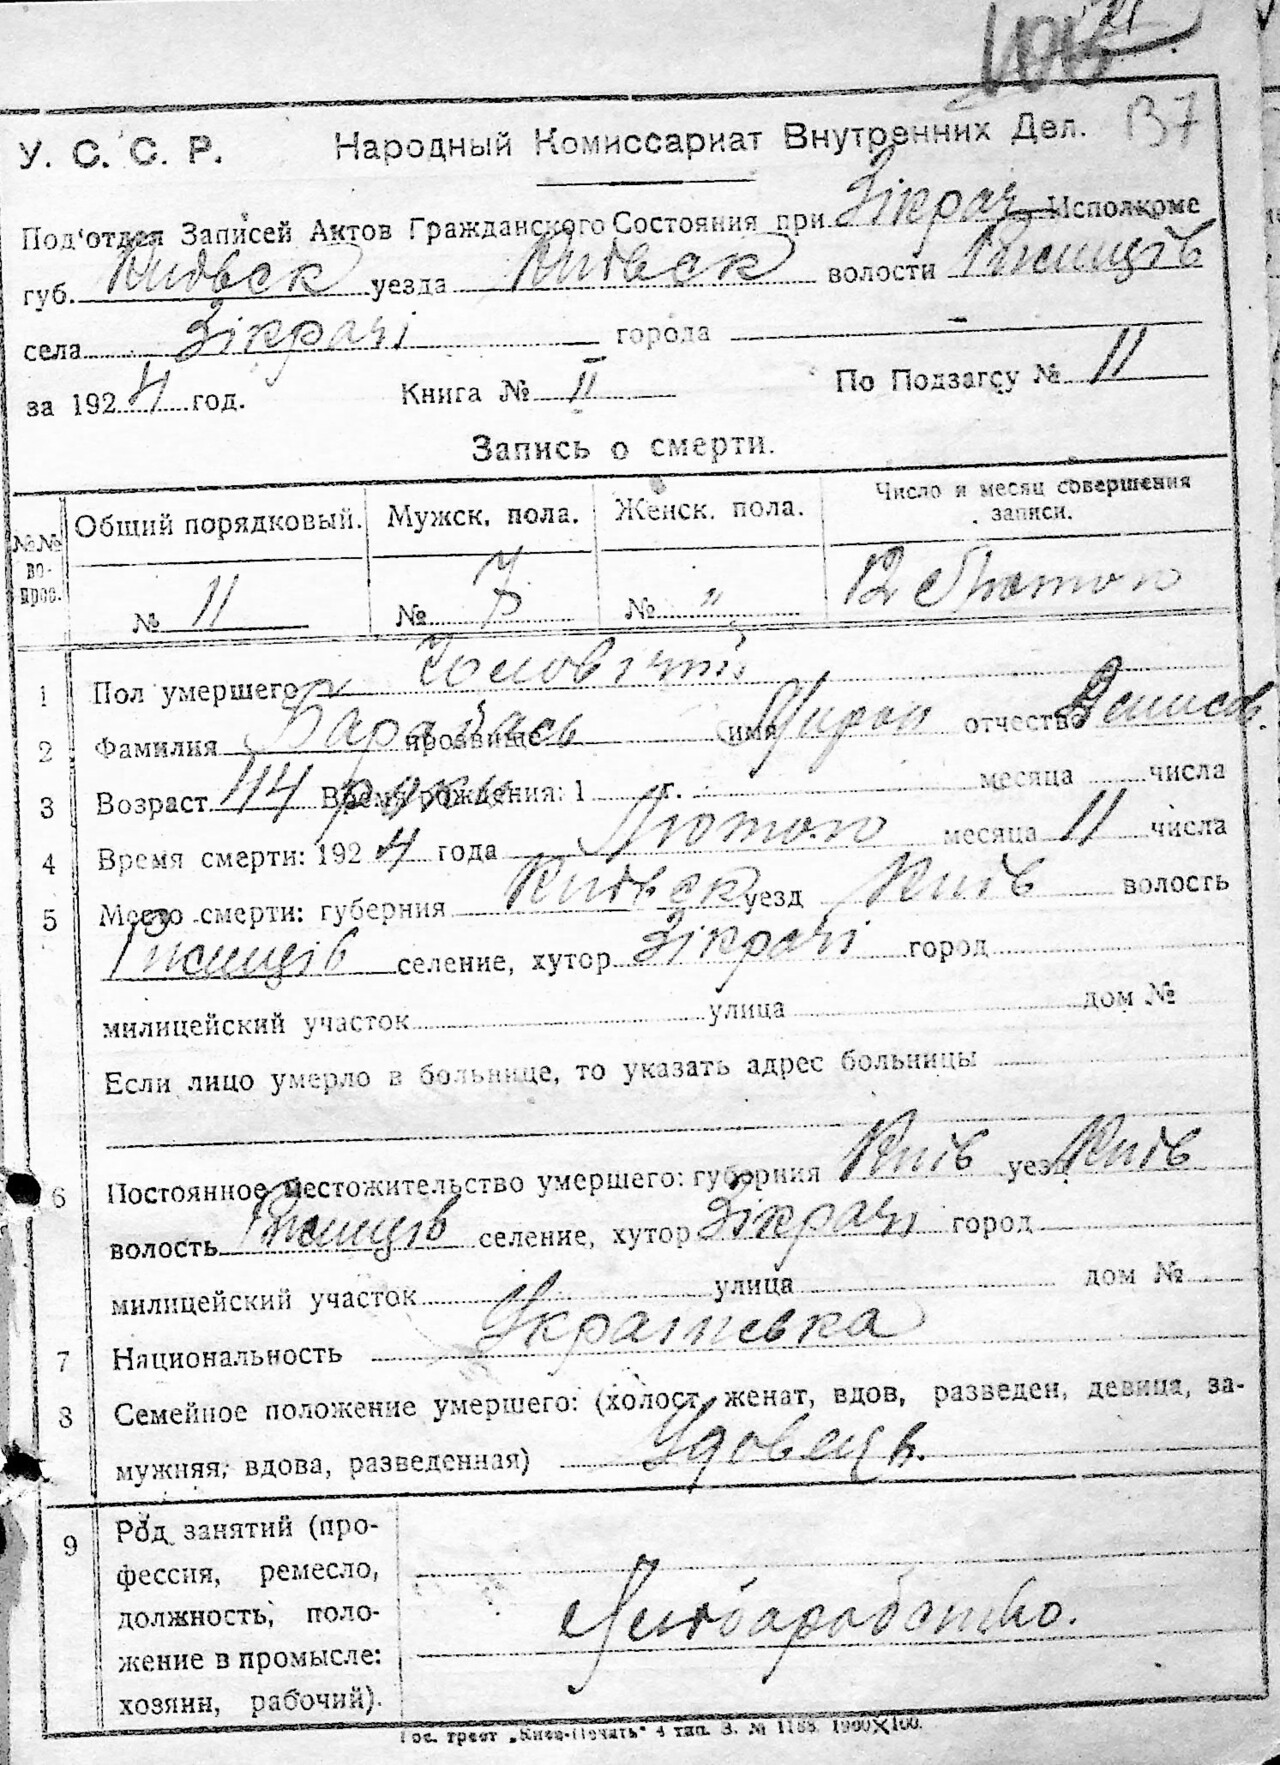 137
У. С. С. Р. Народный Комиссариат Внутренних Дел.
Под'отдел Записей Актов Гражданского Состояния при Зікрач. Исполкоме
губ. Київск уезда Київск волости Ржищів
села Зікрачі города -
за 1924 год. Книга № II По Подзагсу № 11
Запись о смерти.
№№ вопрос. Общий порядковый. Мужск. пола. Женск. пола. Число и месяц совершения записи.
№ 11 № 7 № " 12 Лютого
1 Пол умершего Чоловічий
2 Фамилия прозвище имя Мирон отчество Денисов.
3 Возраст 44 роки Время рождения: 1 г. месяца числа
4 Время смерти: 1924 года Лютого месяца 11 числа
5 Место смерти: губерния Київск уезд Київ волость
Ржищів селение, хутор Зікрачі город
милицейский участок улица дом №
Если лицо умерло в больнице, то указать адрес больницы
6 Постоянное местожительство умершего: губерния Київ уезд Київ
волость Ржищів селение, хутор Зікрачі город
милицейский участок улица дом №
7 Национальность Українська
8 Семейное положение умершего: (холост, женат, вдов, разведен, девица, за-
мужняя, вдова, разведенная) Удовець.
9 Род занятий (про-
фессия, ремесло,
должность, поло-
жение в промысле:
хозяин, рабочий).
Хліборобство.
Гос. трест „Киев-Печать" 4 тип. З. № 1155. 1900×100.